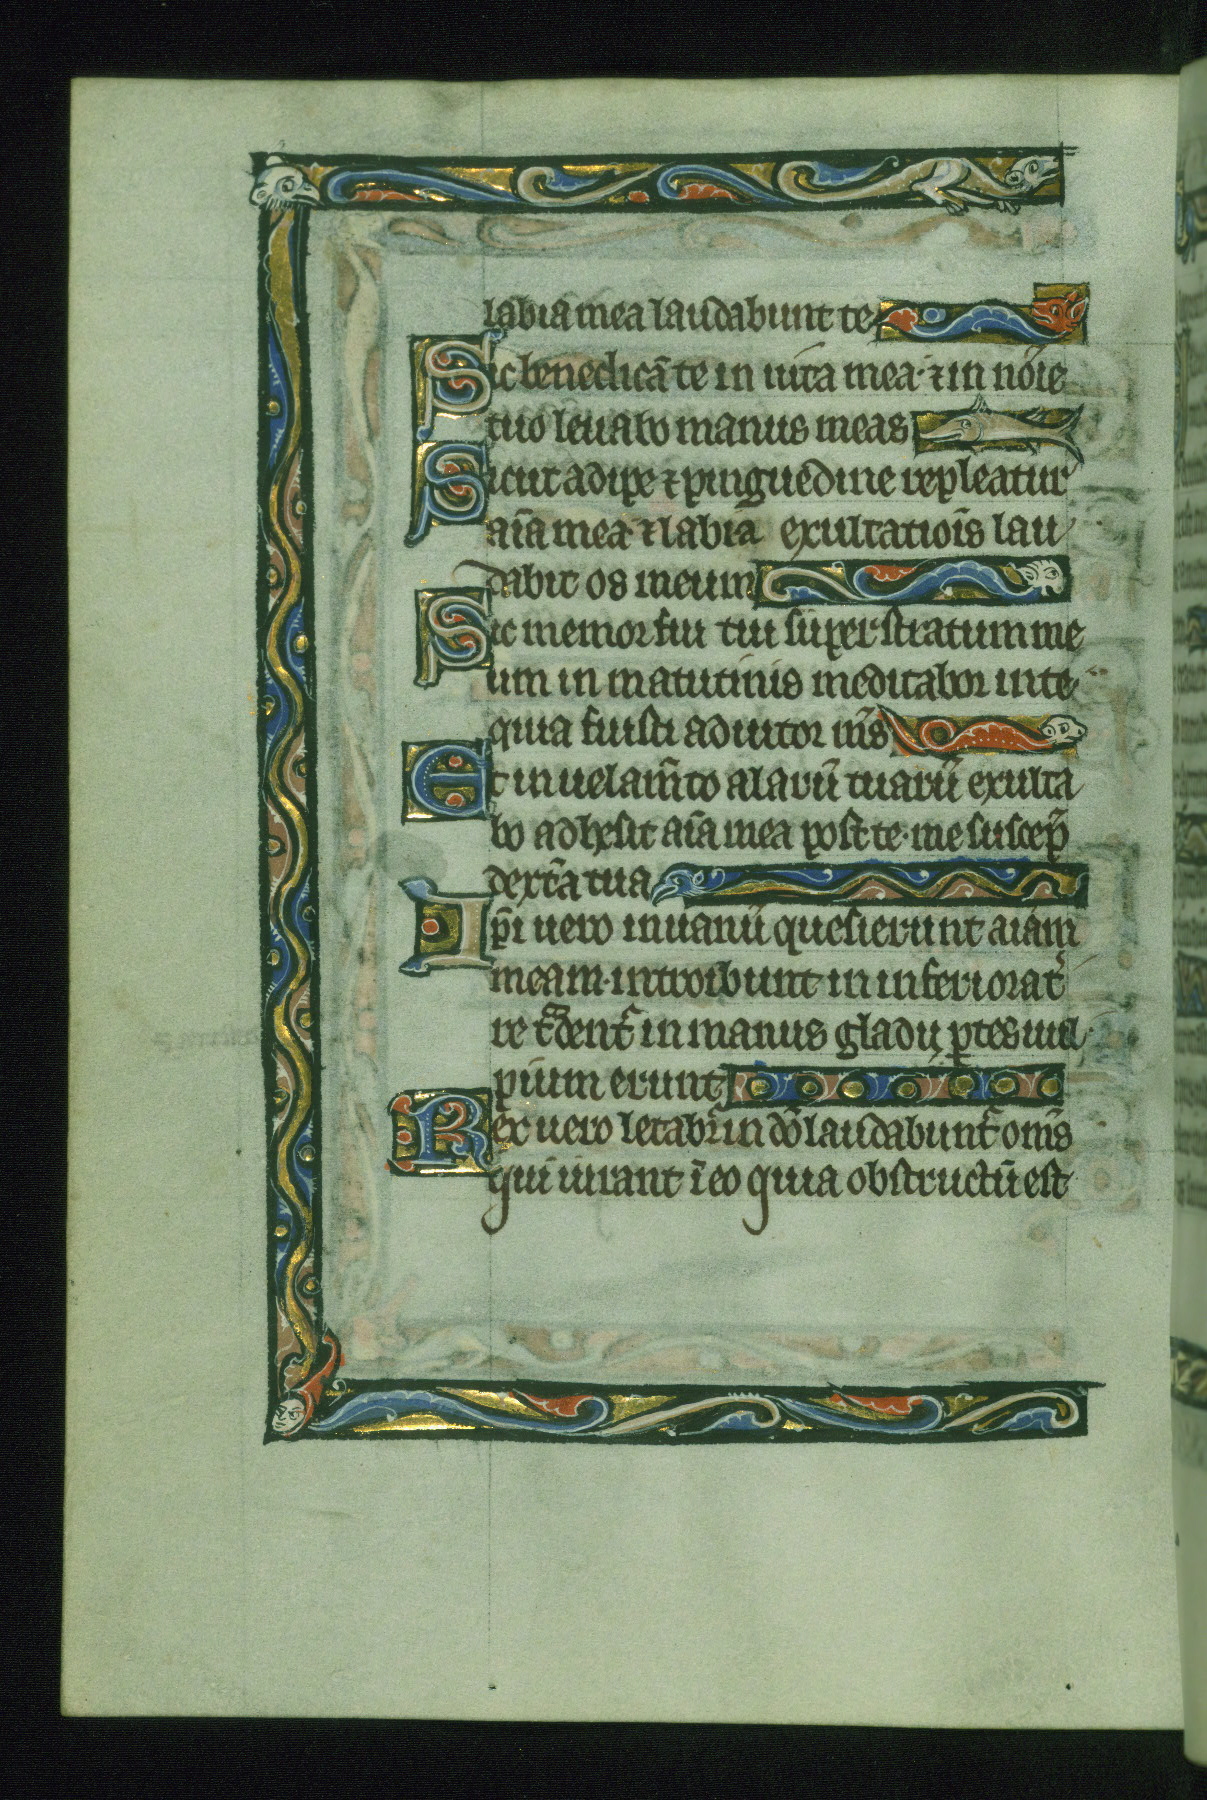 labia mea laudabunt te
Sic benedicā te in uita mea· ⁊ in nōie
tuo leuabo manus meas
Sicut adipe ⁊ pinguedine repleatur
aīa mea· ⁊ labia exultatiōis lau
dabit os meum
Sic memor fui tui super stratum me
um in matutinis meditabor in te·
quia fuisti adiutor m̄s
Et in uelam̄to alarū tuarū exulta
bo adhesit aīa mea post te· me suscep̄
dext̄a tua
Ip̄i uero in uanū quesierunt aīam
meam· introibunt in inferiora t̾
re t̄dent̾ in manus gladij ꝑtes uul
pium erunt
Rex uero letabr̄ in dō laudabunt̾ om̄s
qui iurant ī eo quia obstructū est